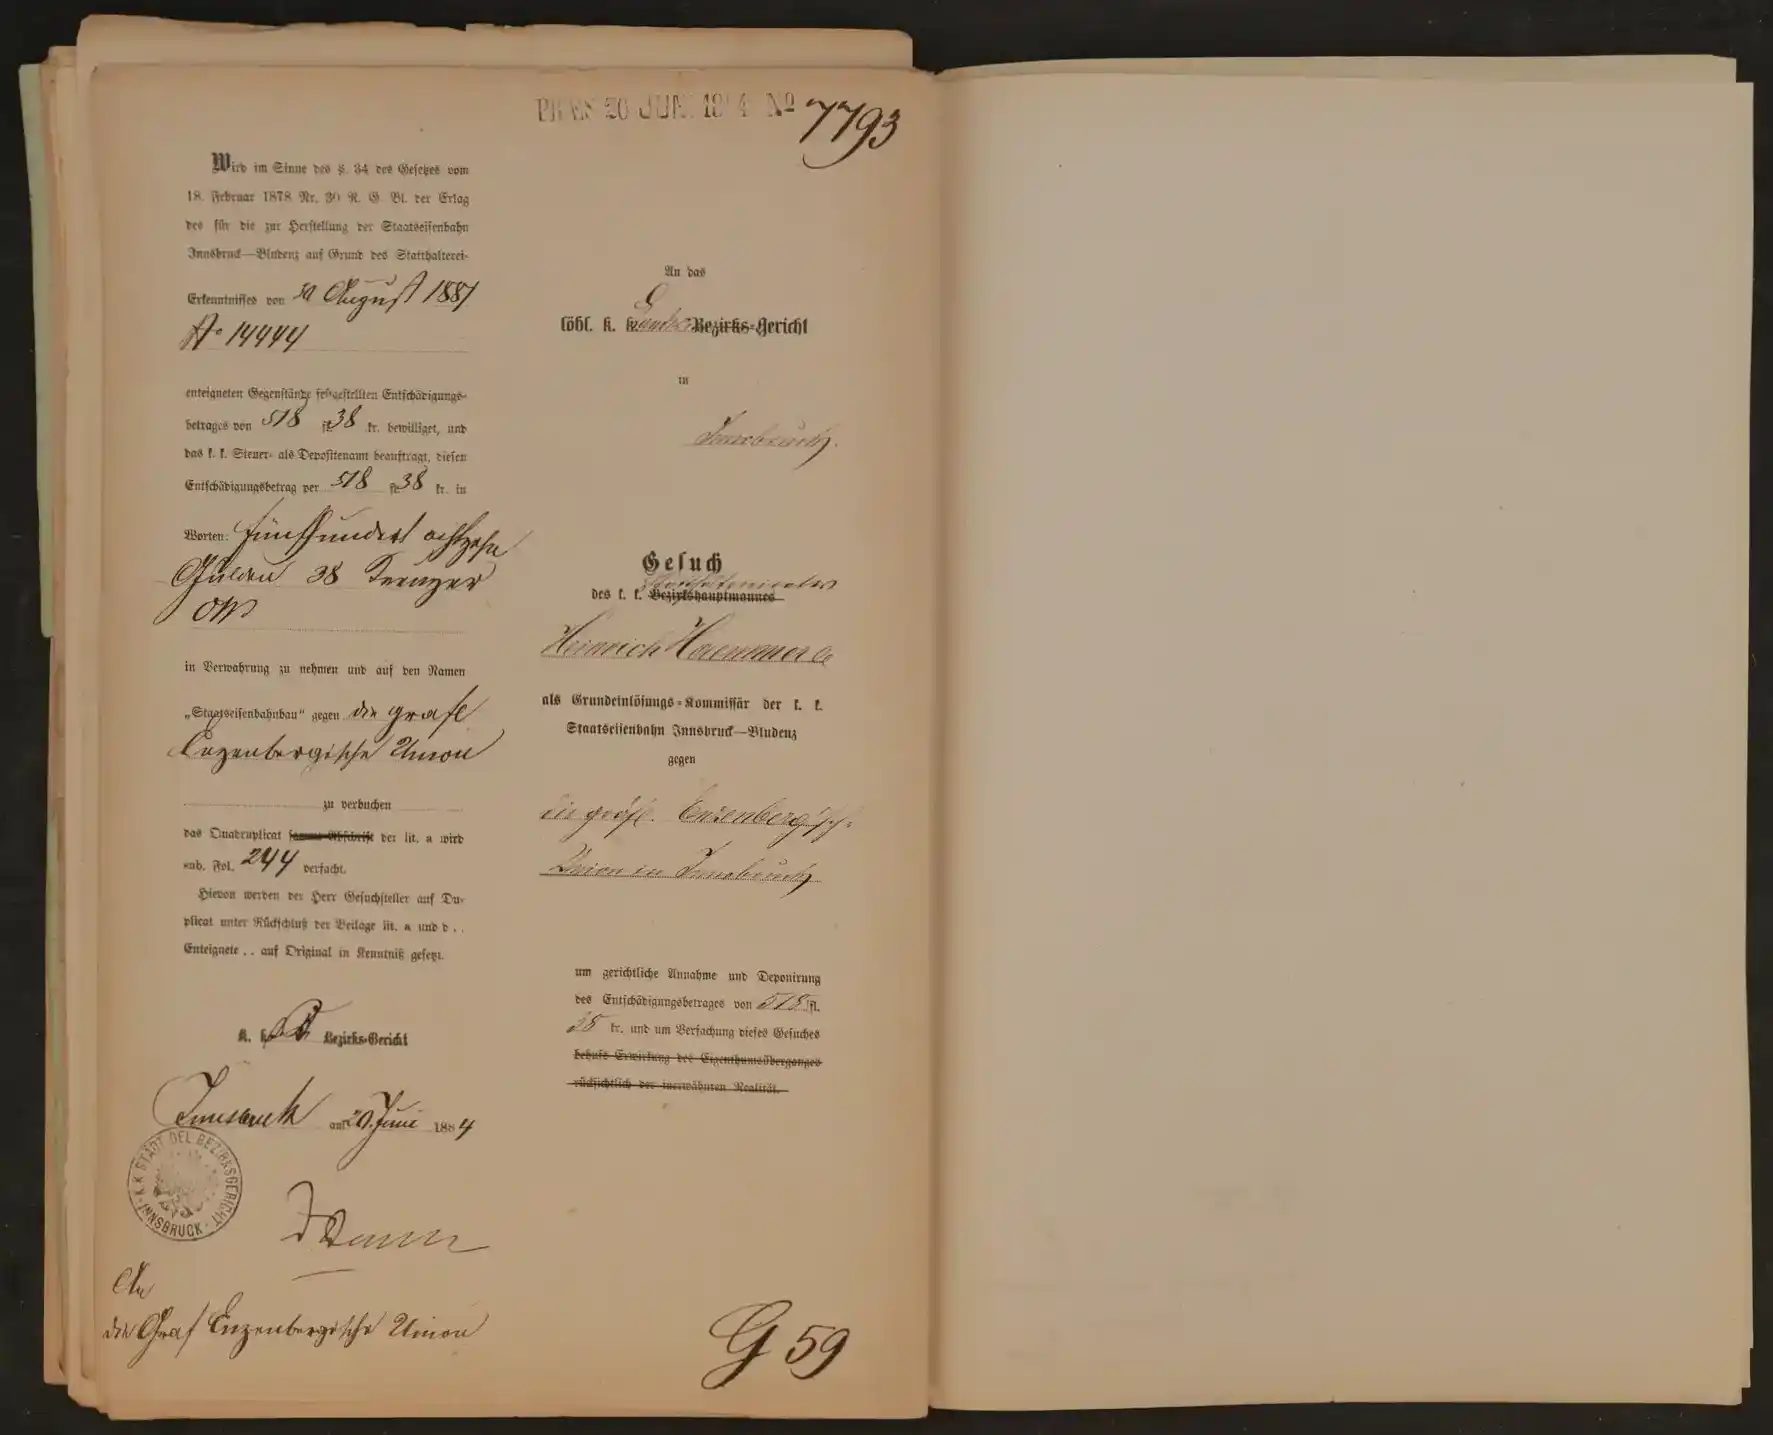 PRAES 20 JUN. 1884 No 7793
Wird im Sinne des §. 34 des Gesetzes vom
18. Februar 1878 Nr. 30 R. G. Bl. der Erlag
des für die zur Herstellung der Staatseisenbahn
Innsbruck—Bludenz auf Grund des Statthalterei-
Erkenntnisses von August 1881
No 14444
enteigneten Gegenstände festgestellten Entschädigungs-
betrages von 518 fl. 38 kr. bewilliget, und
das k. k. Steuer- als Depositenamt beauftragt, diesen
Entschädigungsbetrag per 518 fl. 38 kr. in
Worten: fünfhundert achtzehn
Gulden 38 Kreuzer
ÖW
in Verwahrung zu nehmen und auf den Namen
„Staatseisenbahnbau" gegen die gräfl
Enzenbergische Union
zu verbuchen
das Quadruplicat sammt Abschrift der lit. a wird
sub. Fol. 244 verfacht.
Hievon werden der Herr Gesuchsteller auf Du-
plicat unter Rückschluß der Beilage lit. a und d . .
Enteignete . . auf Original in Kenntniß gesetzt.
K. k. Bezirks-Gericht
Innsbruck am 20. Juni 1884
K. K. STÄDT. DEL. BEZIRKSGERICHT INNSBRUCK
An
die Graf Enzenbergische Union
An das
löbl. k. k. Landes Bezirks-Gericht
in
Innsbruck.
Gesuch
des k. k. Bezirkshauptmannes
Heinrich Haemmerle
als Grundeinlösungs-Kommissär der k. k.
Staatseisenbahn Innsbruck—Bludenz
gegen
die gräfl. Enzenberg'sche
Union in Innsbruck
um gerichtliche Annahme und Deponirung
des Entschädigungsbetrages von 518 fl.
38 kr. und um Verfachung dieses Gesuches
behufs Erwirkung des Eigenthumsüberganges
rücksichtlich der inerwähnten Realität.
G 59